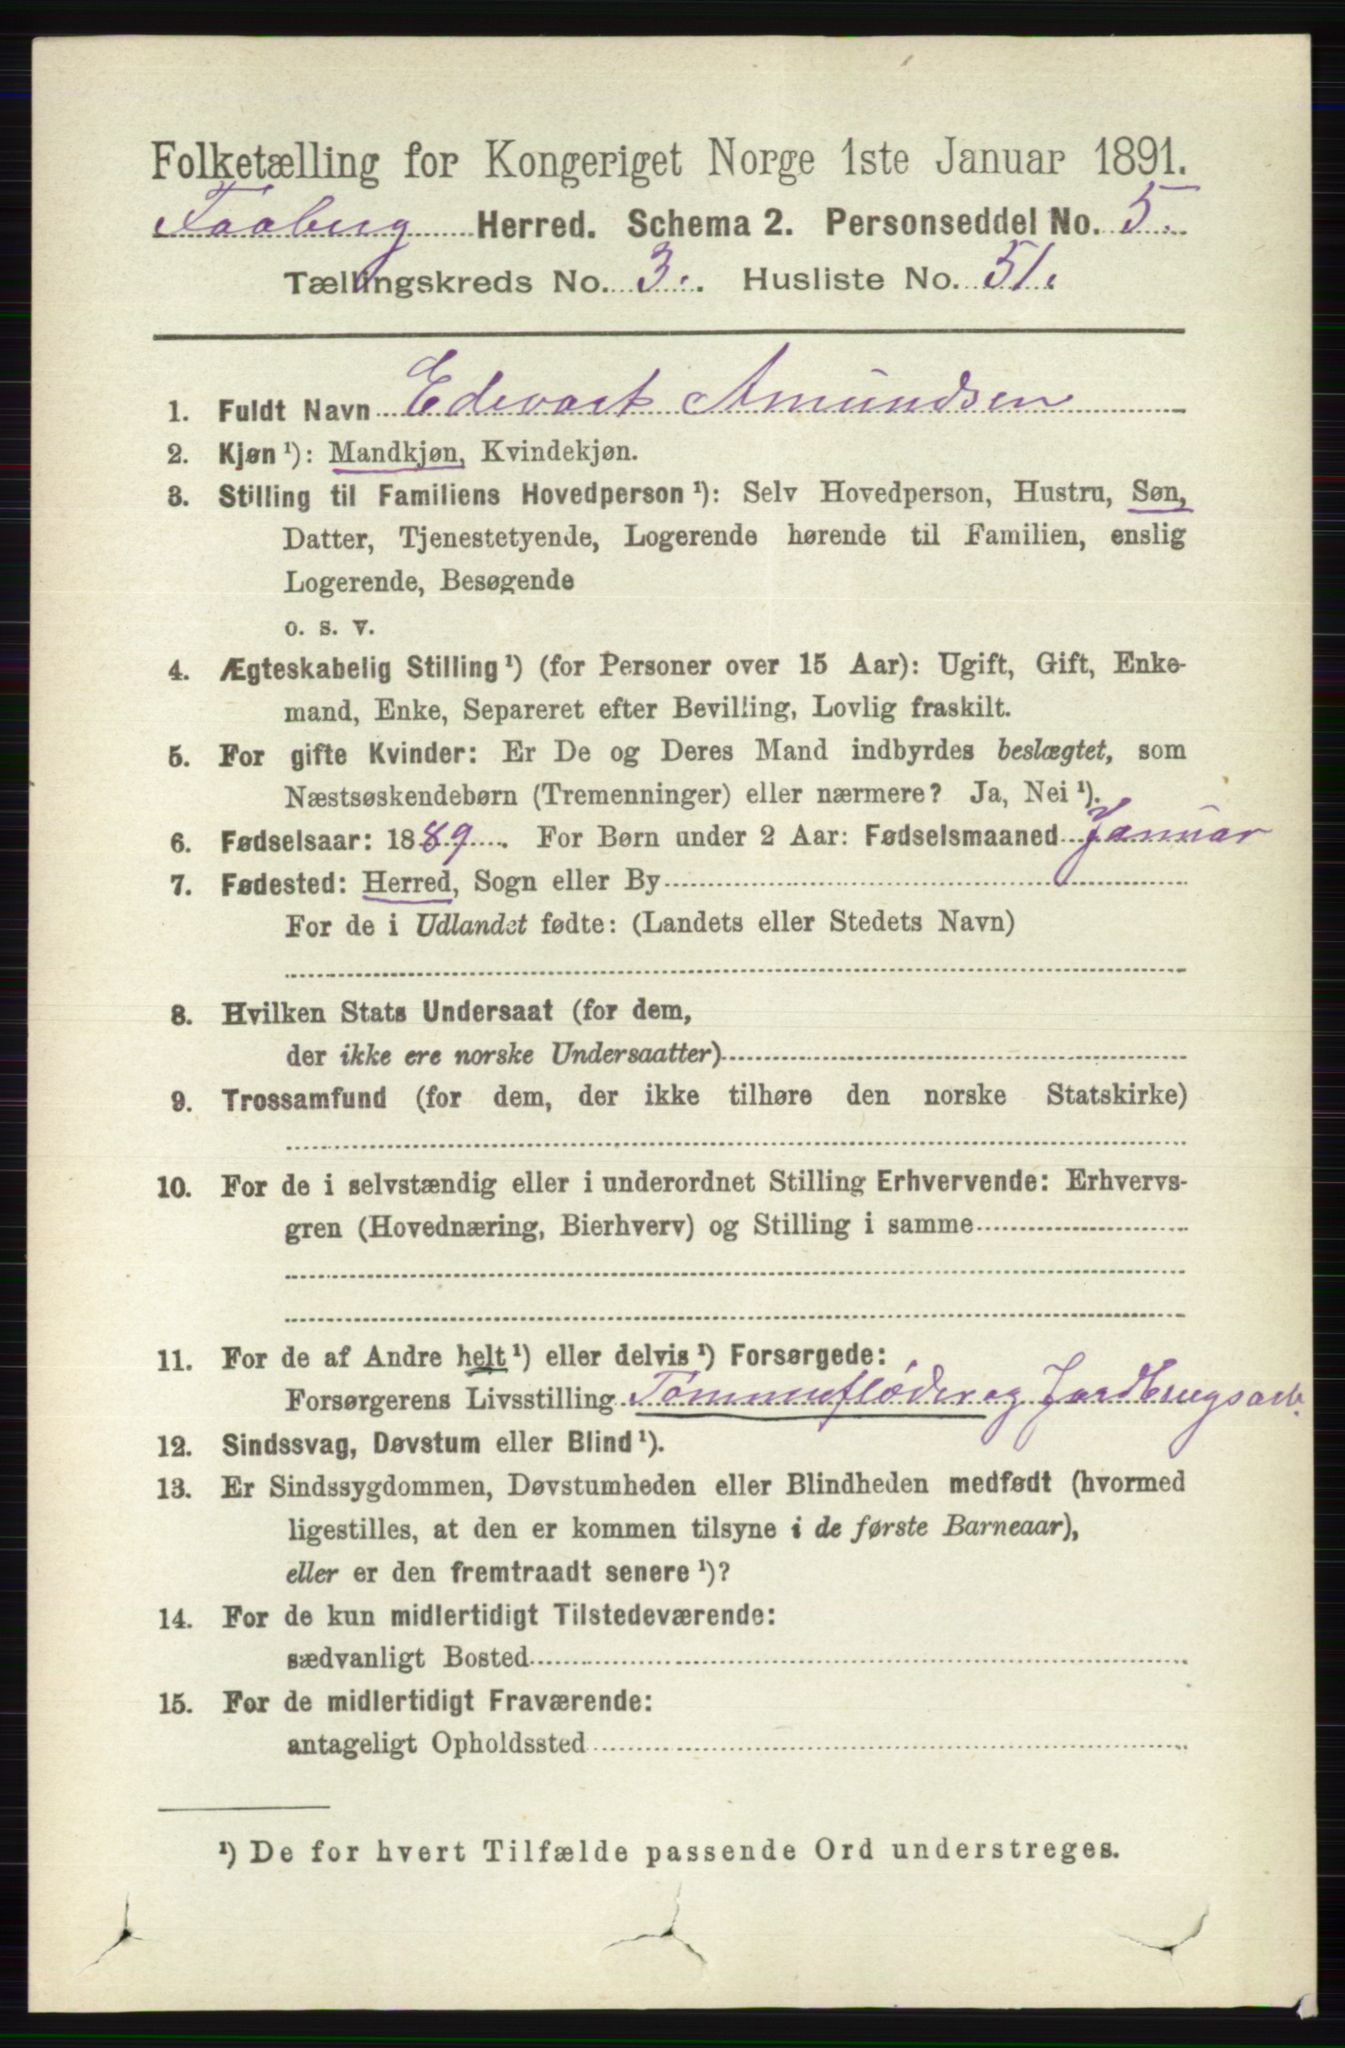 Folketælling for Kongeriget Norge 1ste Januar 1891.
Faaberg Herred. Schema 2. Personseddel No. 5.
Tællingskreds No. 3. Husliste No. 51.
1. Fuldt Navn Edevart Amundsen
2. Kjøn ¹): Mandkjøn, Kvindekjøn.
3. Stilling til Familiens Hovedperson ¹): Selv Hovedperson, Hustru, Søn,
Datter, Tjenestetyende, Logerende hørende til Familien, enslig
Logerende, Besøgende
o. s. v.
4. Ægteskabelig Stilling ¹) (for Personer over 15 Aar): Ugift, Gift, Enke-
mand, Enke, Separeret efter Bevilling, Lovlig fraskilt.
5. For gifte Kvinder: Er De og Deres Mand indbyrdes beslægtet, som
Næstsøskendebørn (Tremenninger) eller nærmere? Ja, Nei ¹).
6. Fødselsaar: 1889. For Børn under 2 Aar: Fødselsmaaned Januar
7. Fødested: Herred, Sogn eller By
For de i Udlandet fødte: (Landets eller Stedets Navn)
8. Hvilken Stats Undersaat (for dem,
der ikke ere norske Undersaatter)
9. Trossamfund (for dem, der ikke tilhøre den norske Statskirke)
10. For de i selvstændig eller i underordnet Stilling Erhvervende: Erhvervs-
gren (Hovednæring, Bierhverv) og Stilling i samme
11. For de af Andre helt ¹) eller delvis ¹) Forsørgede:
Forsørgerens Livsstilling Tømmerfløder og Jordbrugsarb.
12. Sindssvag, Døvstum eller Blind ¹).
13. Er Sindssygdommen, Døvstumheden eller Blindheden medfødt (hvormed
ligestilles, at den er kommen tilsyne i de første Barneaar),
eller er den fremtraadt senere ¹)?
14. For de kun midlertidigt Tilstedeværende:
sædvanligt Bosted
15. For de midlertidigt Fraværende:
antageligt Opholdssted
¹) De for hvert Tilfælde passende Ord understreges.